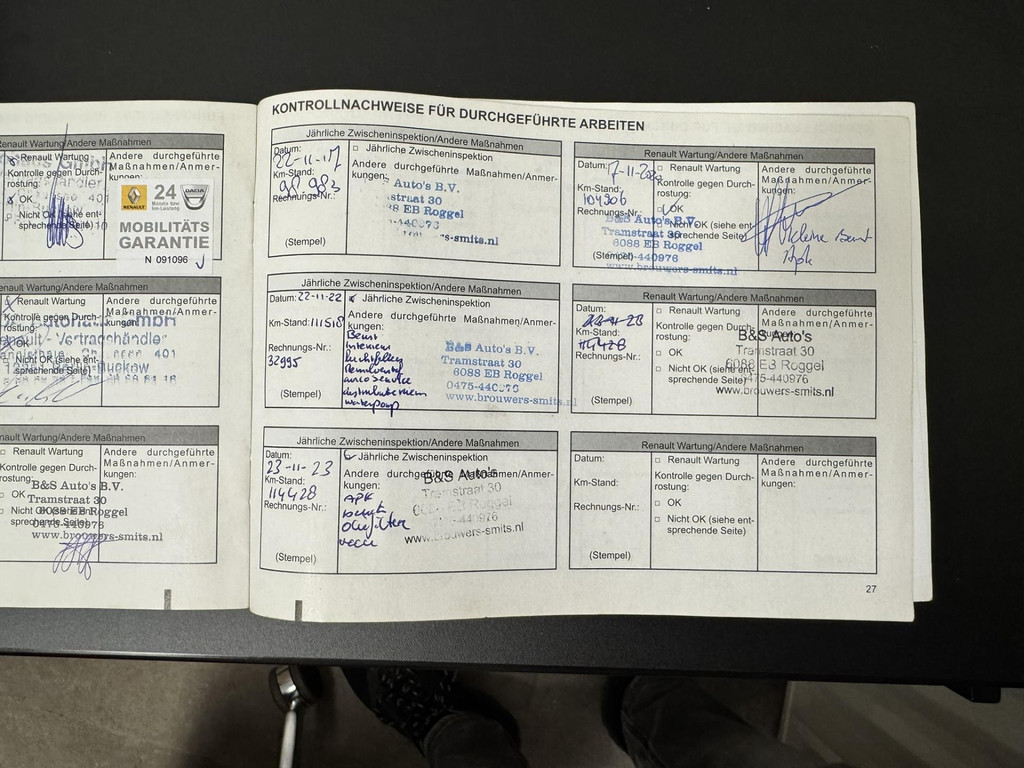 Renault Wartung/Andere Maßnahmen
Renault Wartung
Kontrolle gegen Durch-
rostung:
OK
Nicht OK (siehe ent-
sprechende Seite)
Andere durchgeführte
Maßnahmen/Anmer-
kungen:
RENAULT
24
DACIA
MOBILITÄTS
GARANTIE
N 091096
Renault Wartung/Andere Maßnahmen
Renault Wartung
Kontrolle gegen Durch-
rostung:
OK
Nicht OK (siehe ent-
sprechende Seite)
Andere durchgeführte
Maßnahmen/Anmer-
kungen:
Vertragshändler
401
Buckow
Renault Wartung/Andere Maßnahmen
Renault Wartung
Kontrolle gegen Durch-
rostung:
OK
Nicht OK (siehe ent-
sprechende Seite)
Andere durchgeführte
Maßnahmen/Anmer-
kungen:
B&S Auto's B.V.
Tramstraat 30
6088 EB Roggel
0475-440976
www.brouwers-smits.nl
KONTROLLNACHWEISE FÜR DURCHGEFÜHRTE ARBEITEN
Jährliche Zwischeninspektion/Andere Maßnahmen
Datum:
22-11-17
Km-Stand:
98.983
Rechnungs-Nr.:
(Stempel)
Jährliche Zwischeninspektion
Andere durchgeführte Maßnahmen/Anmer-
kungen:
Auto's B.V.
straat 30
EB Roggel
-smits.nl
Renault Wartung/Andere Maßnahmen
Datum:
Km-Stand:
104906
Rechnungs-Nr.:
(Stempel)
Renault Wartung
Kontrolle gegen Durch-
rostung:
OK
Nicht OK (siehe ent-
sprechende Seite)
Andere durchgeführte
Maßnahmen/Anmer-
kungen:
kleine Beurt
B&S Auto's B.V.
Tramstraat 30
6088 EB Roggel
-440976
www.brouwers-smits.nl
Jährliche Zwischeninspektion/Andere Maßnahmen
Datum: 22-11-22
Km-Stand: 111518
Rechnungs-Nr.:
32995
(Stempel)
Jährliche Zwischeninspektion
Andere durchgeführte Maßnahmen/Anmer-
kungen:
Beurt
interieur
luchtfilter
airco service
distributieriem
waterpomp
B&S Auto's B.V.
Tramstraat 30
6088 EB Roggel
0475-440976
www.brouwers-smits.nl
Renault Wartung/Andere Maßnahmen
Datum:
Km-Stand:
Rechnungs-Nr.:
(Stempel)
Renault Wartung
Kontrolle gegen Durch-
rostung:
OK
Nicht OK (siehe ent-
sprechende Seite)
Andere durchgeführte
Maßnahmen/Anmer-
kungen:
B&S Auto's
Tramstraat 30
6088 EB Roggel
0475-440976
www.brouwers-smits.nl
Jährliche Zwischeninspektion/Andere Maßnahmen
Datum:
23-11-23
Km-Stand:
114428
Rechnungs-Nr.:
(Stempel)
Jährliche Zwischeninspektion
Andere durchgeführte Maßnahmen/Anmer-
kungen:
APK
beurt
oliefilter
B&S Auto's
Tramstraat 30
www.brouwers-smits.nl
Renault Wartung/Andere Maßnahmen
Datum:
Km-Stand:
Rechnungs-Nr.:
(Stempel)
Renault Wartung
Kontrolle gegen Durch-
rostung:
OK
Nicht OK (siehe ent-
sprechende Seite)
Andere durchgeführte
Maßnahmen/Anmer-
kungen:
27